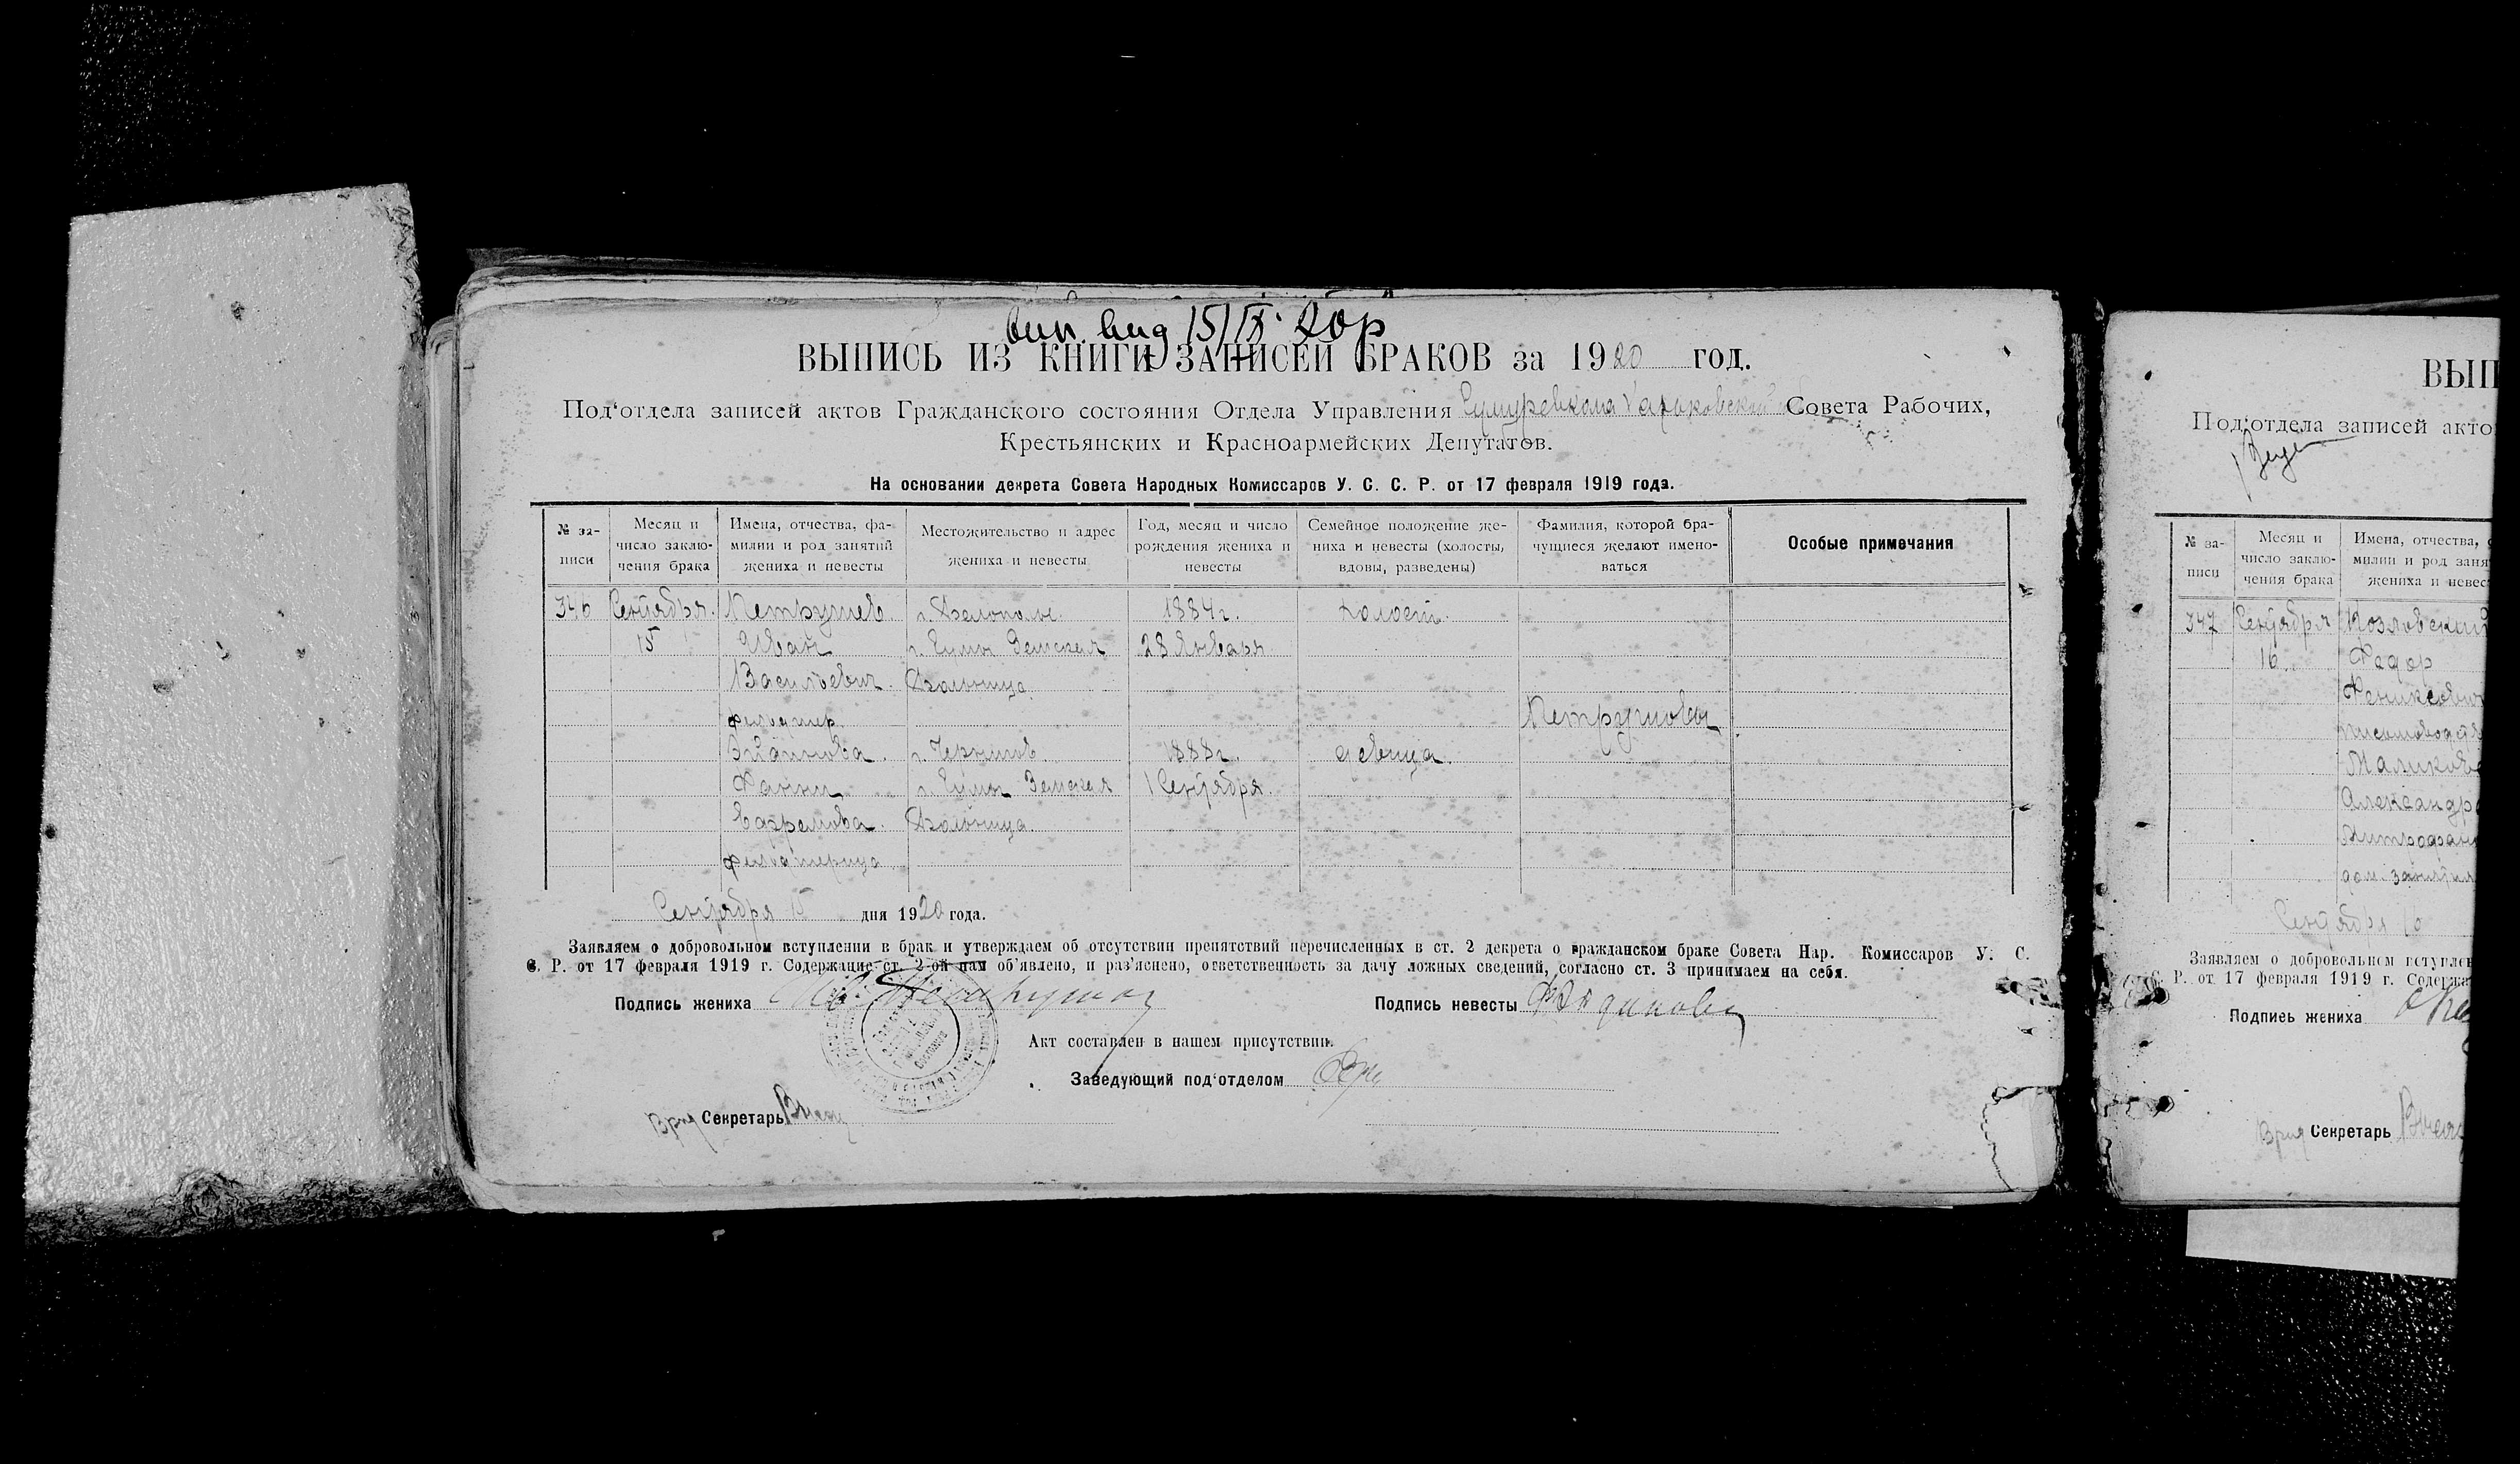 вид 15/IX 20р
ВЫПИСЬ ИЗ КНИГИ ЗАПИСЕЙ БРАКОВ за 1920 год.
Под‘отдела записей актов Гражданского состояния Отдела Управления Сумуревкома Харьковской Совета Рабочих,
Крестьянских и Красноармейских Депутатов.
На основании декрета Совета Народных Комиссаров У. С. С. Р. от 17 февраля 1919 года.
№ записи
Месяц и число заключения брака
Имена, отчества, фамилии и род занятий жениха и невесты
Местожительство и адрес жениха и невесты
Год, месяц и число рождения жениха и невесты
Семейное положение жениха и невесты (холосты, вдовы, разведены)
Фамилия, которой брачущиеся желают именоваться
Особые примечания
346 Сентября Петрушев г. Белополье 1884г. холост.
15 Иван г. Сумы Земская 28 Января
Васильевич Больница
фельдшер Петрушова
г. Чернигов 1888г. девица.
Фанни г. Сумы Земская 1 Сентября
Ефремовна Больница
фельдшерица
Сентября 15 дня 1920 года.
Заявляем о добровольном вступлении в брак и утверждаем об отсутствии препятствий перечисленных в ст. 2 декрета о гражданском браке Совета Нар. Комиссаров У. С.
С. Р. от 17 февраля 1919 г. Содержание ст. 2-ой нам об‘явлено, и раз‘яснено, ответственность за дачу ложных сведений, согласно ст. 3 принимаем на себя.
Подпись жениха
Подпись невесты
Акт составлен в нашем присутствии.
Заведующий под‘отделом
Врид Секретарь
ВЫП
Под‘отдела записей акто
№ записи
Месяц и число заключения брака
Имена, отчества,
милии и род заня
жениха и невес
347 Сентября Козловский
16 Федор
Александр
дом. занятия
Сентября 16
Заявляем о добровольном вступлен
С. Р. от 17 февраля 1919 г. Содержа
Подпись жениха
Врид Секретарь